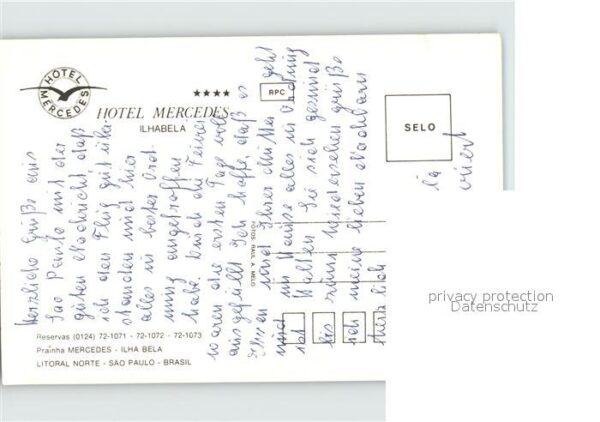 HOTEL
MERCEDES
★★★★
HOTEL MERCEDES
ILHABELA
RPC
SELO
Herzliche Grüße aus
Sao Paulo mit der
guten Nachricht, daß
ich den Flug gut über-
standen und hier
alles in bester Ord-
nung angetroffen
habe. Durch die Feiern
waren die ersten Tag voll
ausgefüllt. Ich hoffe, daß es
Ihnen und Ihrer geht
und im Hause alles in Ordnung
ist. Sie sich gesund
bis zum Wiedersehen grüße
ich meine lieben Nachbarn
FOTOS RAUL A. MELO
Reservas (0124) 72-1071 - 72-1072 - 72-1073
Prainha MERCEDES - ILHA BELA
LITORAL NORTE - SÃO PAULO - BRASIL
privacy protection
Datenschutz